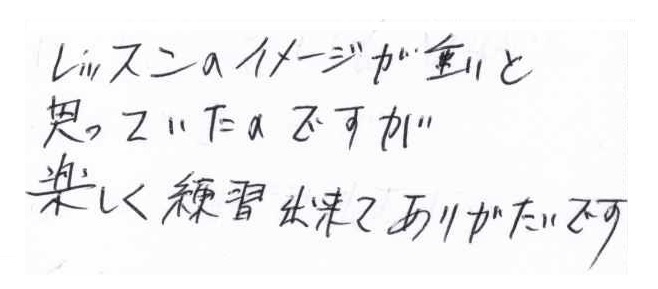 レッスンのイメージが重いと
思っていたのですが
楽しく練習出来てありがたいです